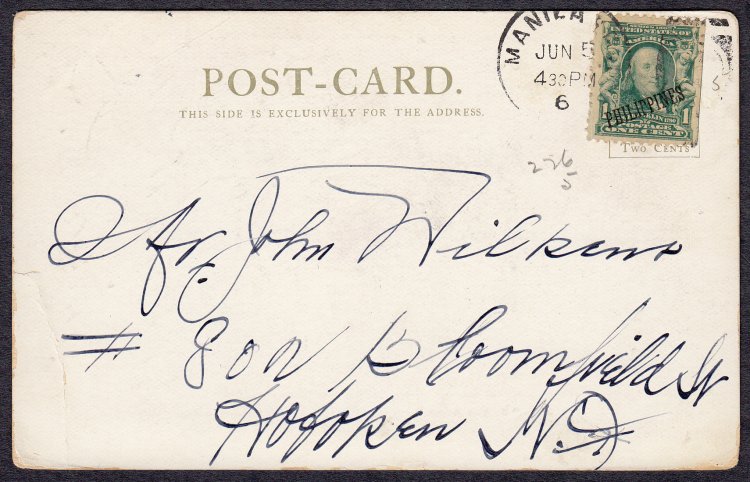 MANILA
JUN 5
430PM
6
UNITED STATES OF
AMERICA
PHILIPPINES
1 1
POSTAGE
ONE CENT
POST-CARD.
THIS SIDE IS EXCLUSIVELY FOR THE ADDRESS.
TWO CENTS
226
5
John Wilkens
# 802 Bloomfield St
Hoboken N.J.